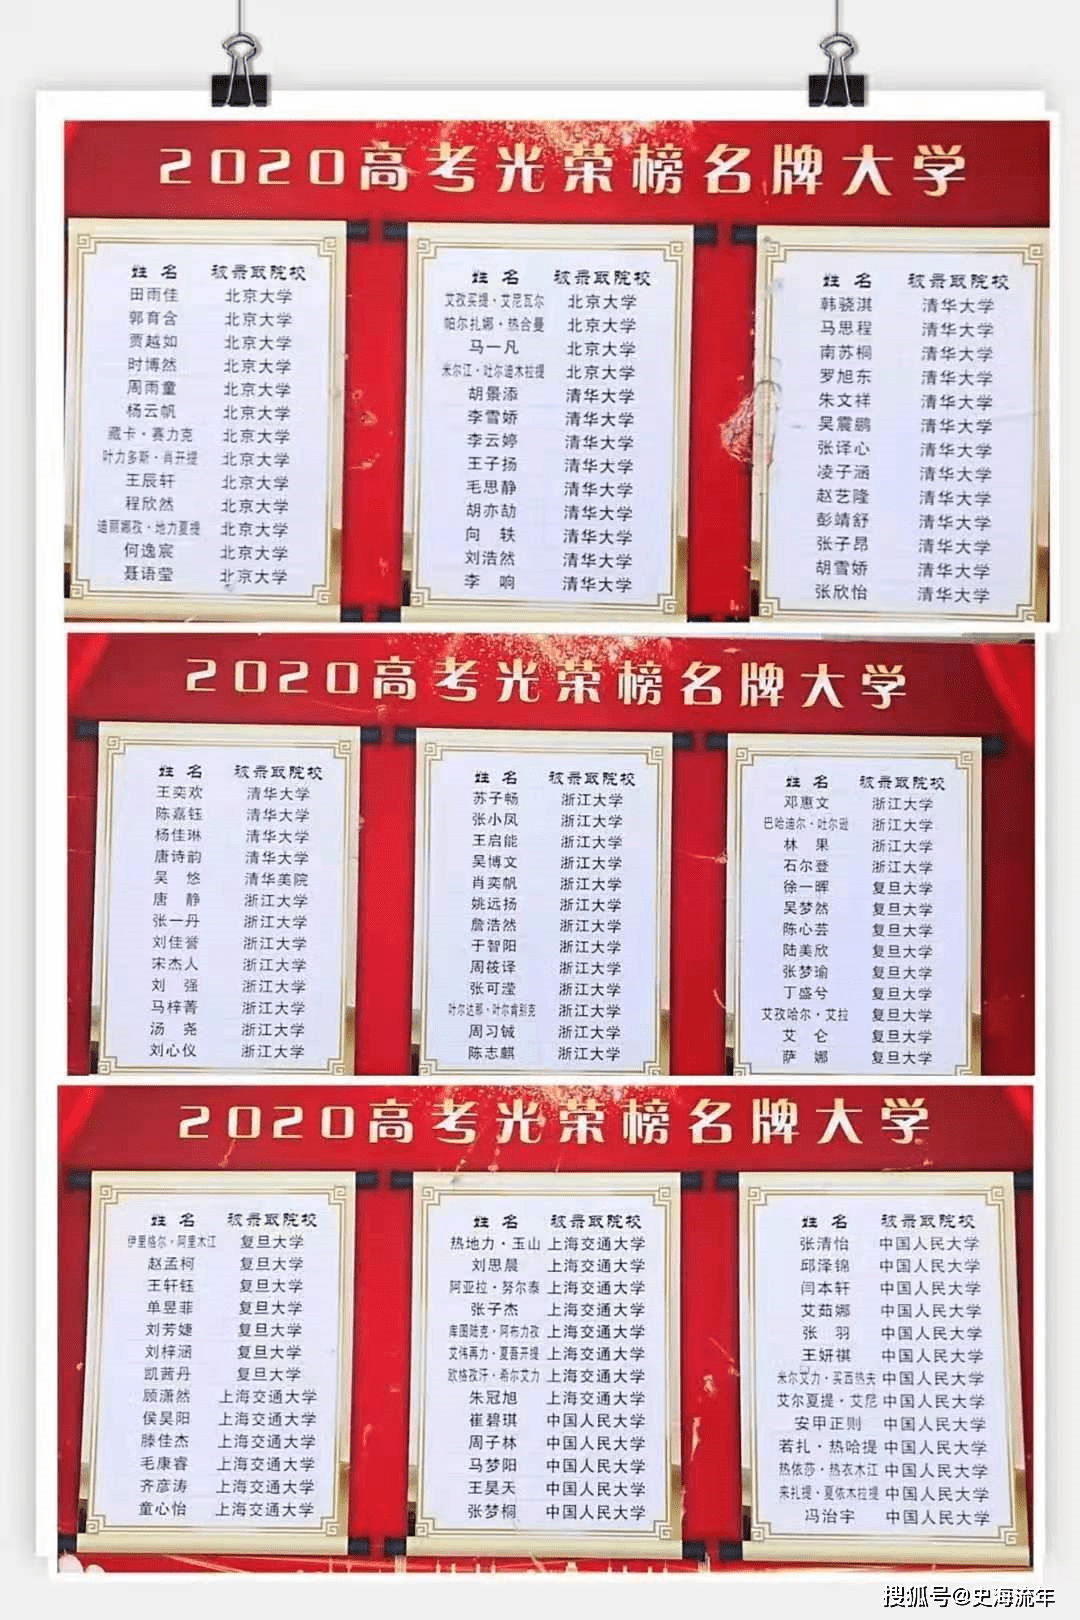 2020高考光荣榜名牌大学
姓 名 被录取院校
田雨佳 北京大学
郭育含 北京大学
贾越如 北京大学
时博然 北京大学
周雨童 北京大学
杨云帆 北京大学
藏卡·赛力克 北京大学
叶力多斯·肖开提 北京大学
王辰轩 北京大学
程欣然 北京大学
迪丽娜孜·地力夏提 北京大学
何逸宸 北京大学
聂语莹 北京大学
姓 名 被录取院校
艾孜买提·艾尼瓦尔 北京大学
帕尔扎娜·热合曼 北京大学
马一凡 北京大学
米尔江·吐尔迪木拉提 北京大学
胡景添 清华大学
李雪娇 清华大学
李云婷 清华大学
王子扬 清华大学
毛思静 清华大学
胡亦劼 清华大学
向 轶 清华大学
刘浩然 清华大学
李 响 清华大学
姓 名 被录取院校
韩骁淇 清华大学
马思程 清华大学
南苏桐 清华大学
罗旭东 清华大学
朱文祥 清华大学
吴震鹏 清华大学
张译心 清华大学
凌子涵 清华大学
赵艺隆 清华大学
彭靖舒 清华大学
张子昂 清华大学
胡雪娇 清华大学
张欣怡 清华大学
2020高考光荣榜名牌大学
姓 名 被录取院校
王奕欢 清华大学
陈嘉钰 清华大学
杨佳琳 清华大学
唐诗韵 清华大学
吴 悠 清华美院
唐 静 浙江大学
张一丹 浙江大学
刘佳誉 浙江大学
宋杰人 浙江大学
刘 强 浙江大学
马梓菁 浙江大学
汤 尧 浙江大学
刘心仪 浙江大学
姓 名 被录取院校
苏子畅 浙江大学
张小凤 浙江大学
王启能 浙江大学
吴博文 浙江大学
肖奕帆 浙江大学
姚远扬 浙江大学
詹浩然 浙江大学
于智阳 浙江大学
周筱译 浙江大学
张可滢 浙江大学
叶尔达那·叶尔肯别克 浙江大学
周习铖 浙江大学
陈志麒 浙江大学
姓 名 被录取院校
邓惠文 浙江大学
巴哈迪尔·吐尔逊 浙江大学
林 果 浙江大学
石尔登 浙江大学
徐一晖 复旦大学
吴梦然 复旦大学
陈心芸 复旦大学
陆美欣 复旦大学
张梦瑜 复旦大学
丁盛兮 复旦大学
艾孜哈尔·艾拉 复旦大学
艾 仑 复旦大学
萨 娜 复旦大学
2020高考光荣榜名牌大学
姓 名 被录取院校
伊里格尔·阿里木江 复旦大学
赵孟柯 复旦大学
王轩钰 复旦大学
单昱菲 复旦大学
刘芳婕 复旦大学
刘梓涵 复旦大学
凯茜丹 复旦大学
顾潇然 上海交通大学
侯昊阳 上海交通大学
滕佳杰 上海交通大学
毛康睿 上海交通大学
齐彦涛 上海交通大学
童心怡 上海交通大学
姓 名 被录取院校
热地力·玉山 上海交通大学
刘思晨 上海交通大学
阿亚拉·努尔泰 上海交通大学
张子杰 上海交通大学
库图陆克·阿布力孜 上海交通大学
艾伟再力·夏吾开提 上海交通大学
欧格孜汗·希尔艾力 上海交通大学
朱冠旭 上海交通大学
崔碧琪 中国人民大学
周子林 中国人民大学
马梦阳 中国人民大学
王昊天 中国人民大学
张梦桐 中国人民大学
姓 名 被录取院校
张清怡 中国人民大学
邱泽锦 中国人民大学
闫本轩 中国人民大学
艾茹娜 中国人民大学
张 羽 中国人民大学
王妍祺 中国人民大学
米尔艾力·买西热夫 中国人民大学
艾尔夏提·艾尼 中国人民大学
安甲正则 中国人民大学
若扎·热哈提 中国人民大学
热依莎·热衣木江 中国人民大学
来扎提·夏依木拉提 中国人民大学
冯治宇 中国人民大学
搜狐号@史海流年